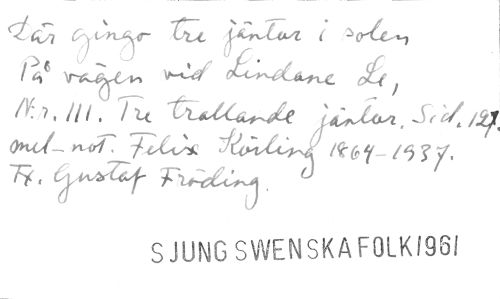 Där gingo tre jäntor i solen
På vägen vid Lindane Le,
N:r. 111. Tre trallande jäntor. Sid. 127.
mel-not. Felix Körling 1864-1937.
Tx. Gustaf Fröding.
SJUNG SWENSKA FOLK 1961